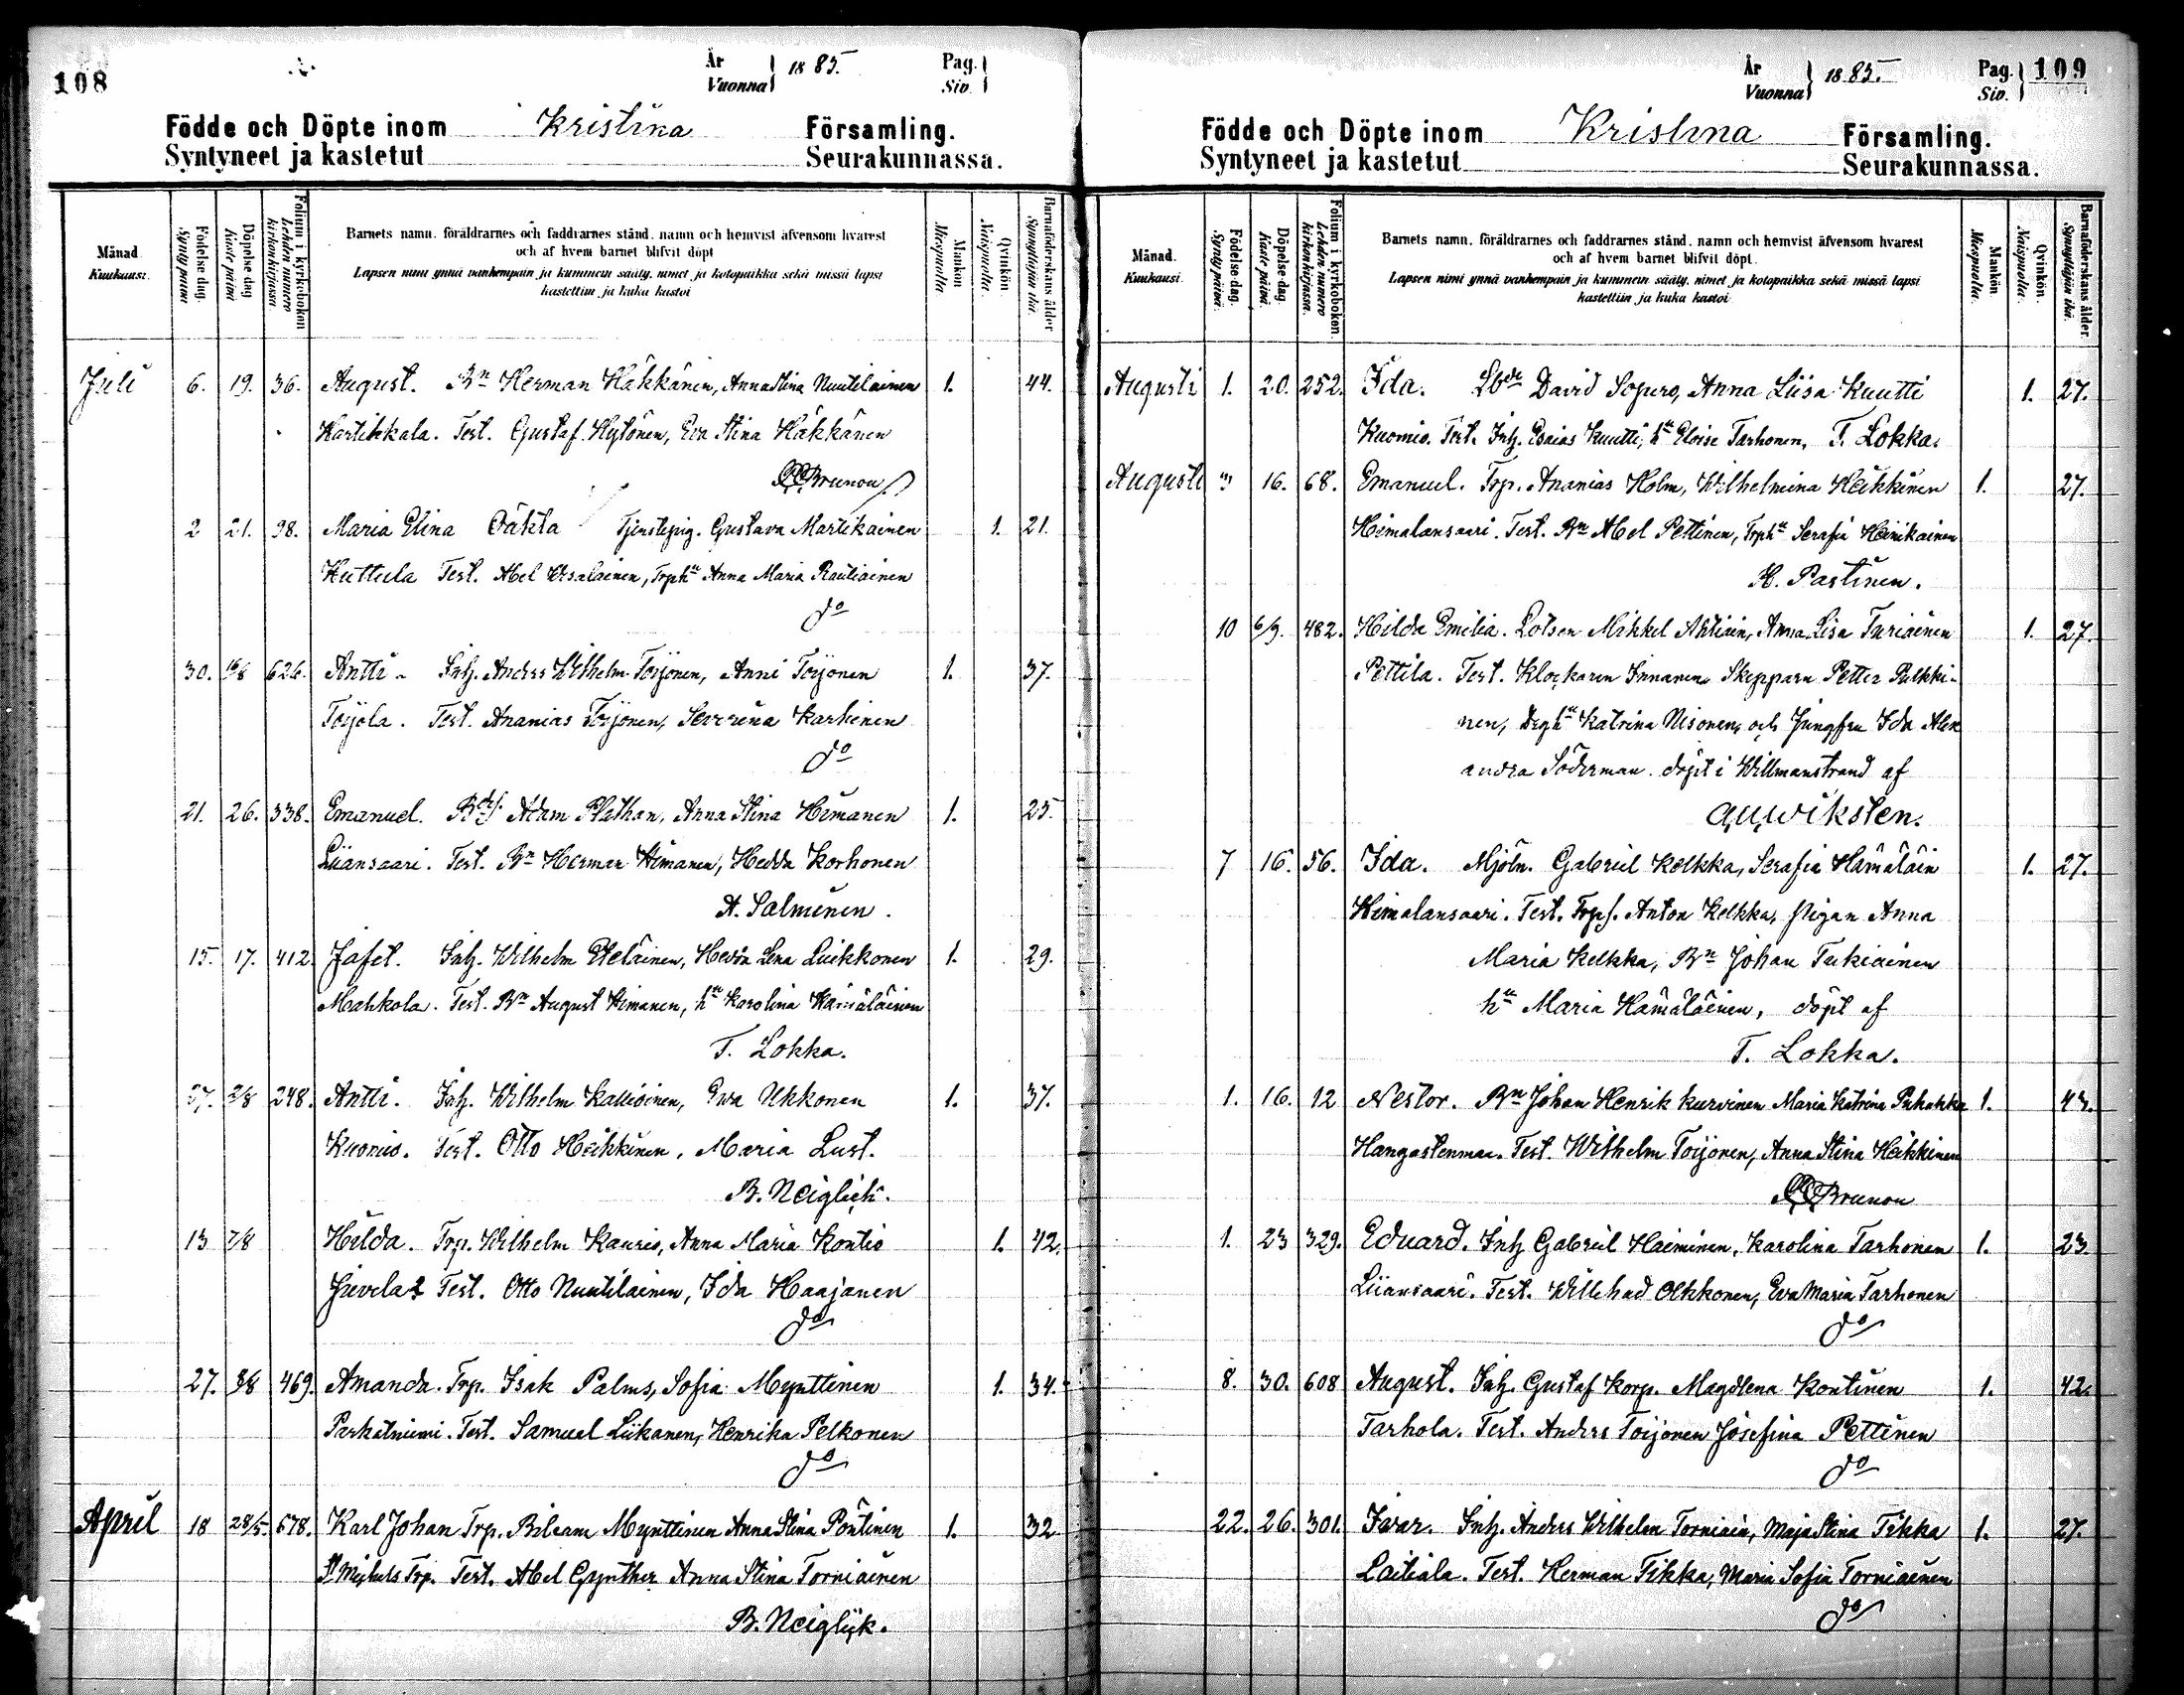 108
År
Vuonna
1885.
Pag.
Siv.
Födde och Döpte inom Kristina Församling.
Syntyneet ja kastetut Seurakunnassa.
Månad
Kuukausi.
Födelse dag.
Synty päivä
Döpelse dag
Kaste päivä
Folium i kyrkoboken
Lehden numero kirkonkirjassa.
Barnets namn, föräldrarnes och faddrarnes stånd, namn och hemvist äfvensom hvarest
och af hvem barnet blifvit döpt
Lapsen nimi ynnä vanhempain ja kummein sääty, nimet ja kotopaikka sekä missä lapsi
kastettiin ja kuka kastoi
Mankön
Miespuolta
Qvinkön
Naispuolta.
Barnaföderskans ålder
Synnyttäjän ikä.
Juli 6. 19. 36. August. Bn Herman Häkkänen, Anna Stina Nuutilainen 1. 44.
Karttikkala. Test. Gustaf Hytönen, Eva Stina Häkkänen
Brunou
2 21. 98. Maria Elina Oäkta Tjenstepig. Gustava Martikainen 1. 21.
Huttula Test. Abel Ursalainen, Trphu Anna Maria Rautiainen
do
30. 16/8 626. Antti. Inh. Anders Wilhelm Toijonen, Anni Toijonen 1. 37.
Toijola. Test. Ananias Toijonen, Severina Kartinen
do
21. 26. 338. Emanuel. Adam Plathan, Anna Stina Himanen 1. 25.
Liiansaari. Test. Bn Herman Himanen, Hedda Korhonen
A. Salminen.
15. 17. 412. Jafet. Inh. Wilhelm Eteläinen, Hedda Lena Luikkonen 1. 29.
Mahkola. Test. Bn August Himanen, hu Karolina Hämäläinen
T. Lokka.
27. 2/8 248. Antti. Inh. Wilhelm Kallioinen, Eva Ukkonen 1. 37.
Kuomio. Test. Otto Heikkinen, Maria Lust.
B. Neiglick.
13 2/8 Hilda. Trp. Wilhelm Kauris, Anna Maria Kontio 1. 42.
Test. Otto Nuutilainen, Ida Haajanen
do
27. 3/8 469. Amanda. Trp. Isak Palms, Sofia Mynttinen 1. 34.
Parkatniemi. Test. Samuel Liikanen, Henrika Pelkonen
do
April 18 28/5. 678. Karl Johan Trp. Bileam Mynttinen Anna Stina Pöntinen 1. 32
St Michels Trp. Test. Abel Gynther Anna Stina Torniainen
B. Neiglick.
År
Vuonna
1885.
Pag.
Siv.
109
Födde och Döpte inom Kristina Församling.
Syntyneet ja kastetut Seurakunnassa.
Månad.
Kuukausi
Födelse-dag.
Synty päivä.
Döpelse-dag
Kaste-päivä.
Folium i kyrkoboken.
Lehden numero kirkonkirjassa.
Barnets namn, föräldrarnes och faddrarnes stånd, namn och hemvist äfvensom hvarest
och af hvem barnet blifvit döpt.
Lapsen nimi ynnä vanhempain ja kummein sääty, nimet ja kotopaikka sekä missä lapsi
kastettiin ja kuka kastoi
Mankön
Miespuolta.
Qvinkön.
Naispuolta.
Barnaföderskans ålder
Synnyttäjän ikä.
Augusti 1. 20. 252. Ida. David Sopuro, Anna Liisa Kuutti 1. 27.
Kuomio. Test. Inh. Esaias Kuutti, hu Eloise Tarhonen, T. Lokka.
Augusti 3 16. 68. Emanuel. Trp. Ananias Holm, Wilhelmina Heikkinen 1. 27.
Himalansaari. Test. Bn Abel Pettinen, Trphu Serafia Heinikainen
H. Partinen.
10 6/9. 482. Hilda Emilia. Lotsen Mikkel Ahtiain, Anna Lisa Turiainen 1. 27.
Pettila. Test. Klockaren Innanen, Skepparn Petter Pulkki-
nen, Katrina Nisonen, och Jungfru Ida Alex
andra Söderman. döpt i Willmanstrand af
Wiksten.
7 16. 56. Ida. Mjöln. Gabriel Kelkka, Serafia Hämäläin 1. 27.
Himalansaari. Test. Trps. Anton Kelkka, pigan Anna
Maria Kelkka, Bn Johan Tukiainen
hu Maria Hämäläinen, döpt af
T. Lokka.
1. 16. 12 Nestor. Bn Johan Henrik Kurvinen Maria Katrina Puhakka 1. 43.
Hangastenmaa. Test. Wilhelm Toijonen, Anna Stina Heikkinen
Brunou
1. 23 329. Eduard. Inh Gabriel Haiminen, Karolina Tarhonen 1. 23.
Liiansaari. Test. Willehad Olkkonen, Eva Maria Tarhonen
do
8. 30. 608 August. Inh. Gustaf Korp. Magdlena Kontinen 1. 42.
Tarhola. Test. Anders Toijonen Josefina Pettinen
do
22. 26. 301. Iwar. Inh. Anders Wilhelm Torniain, Maja Stina Tikka 1. 27.
Laitiala. Test. Herman Tikka, Maria Sofia Torniainen
do